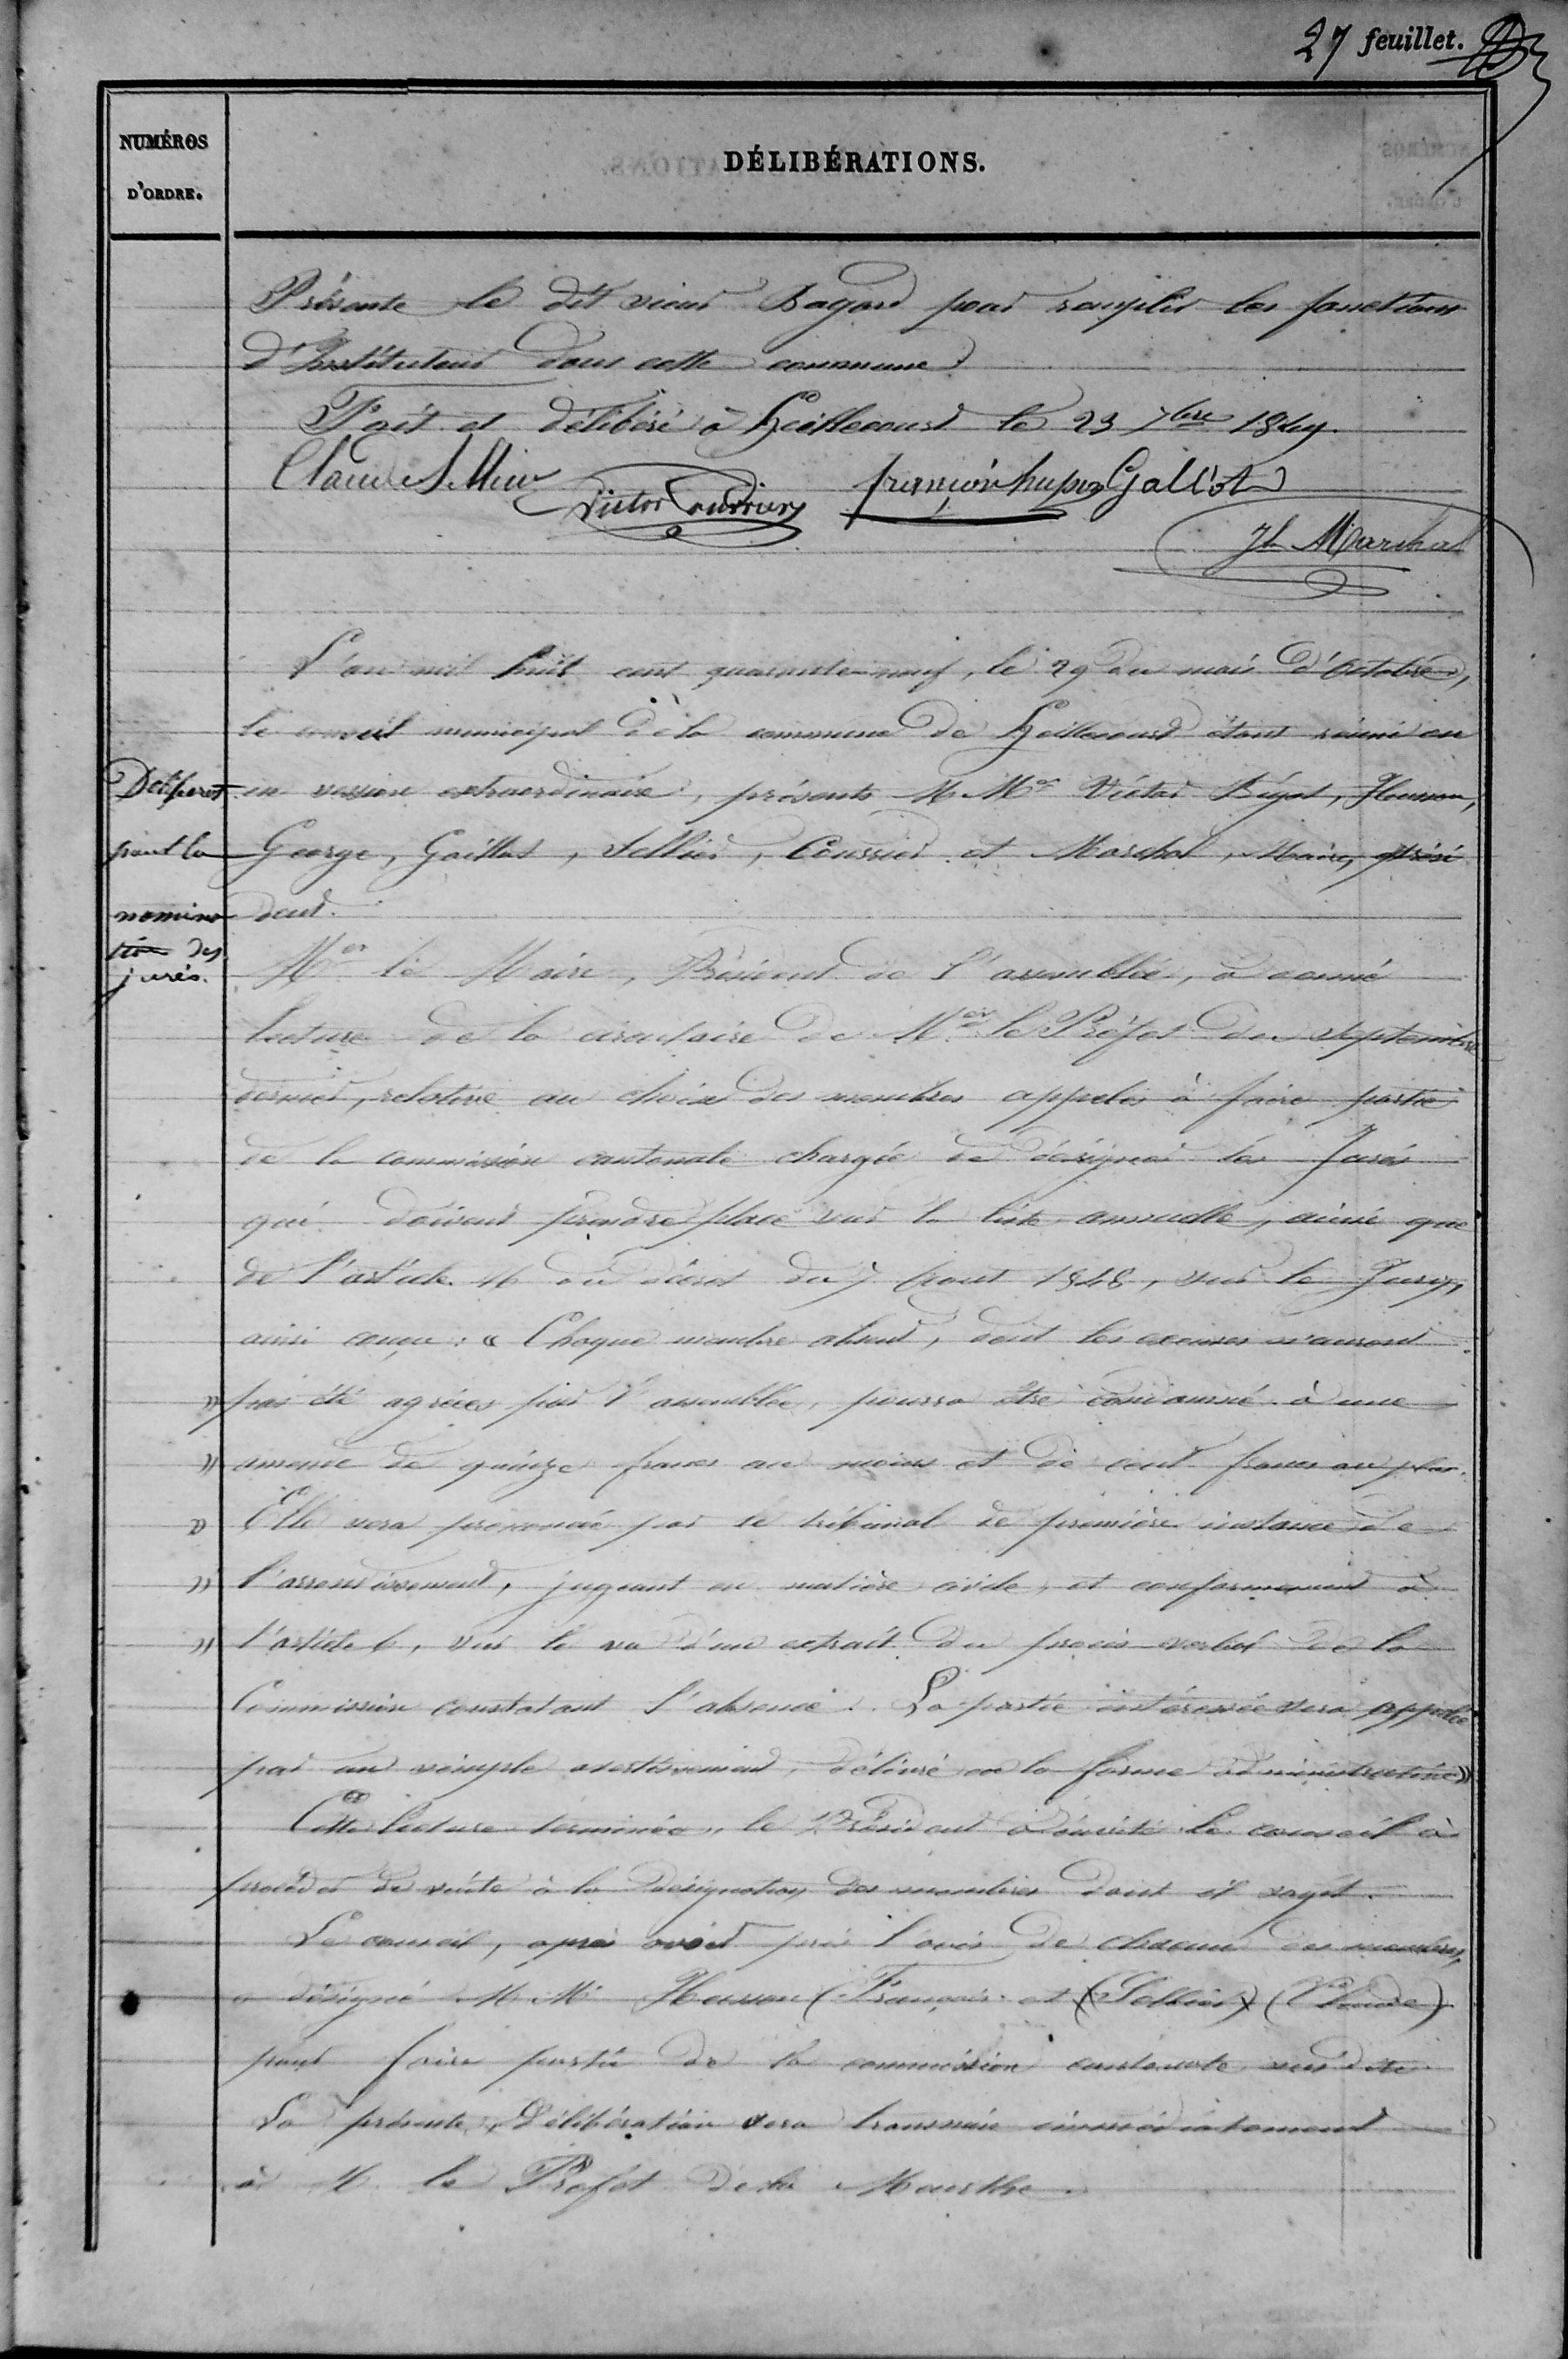 27 feuillet.
NUMÉROS
D'ORDRE.
DÉLIBÉRATIONS.
Présente le dit sieur Bagard pour remplir les fonctions
d'Instituteur dans cette commune
Fait et délibéré à Heillecourt le 23 7bre 1849.
Claude Sellier
Victor Courrier
françois husson Galliot
Jh Marchal
L'an mil huit cent quarante-neuf, le 29 du mois d'Octobre,
le conseil municipal de la commune de Heillecourt étant réuni en
en session extraordinaire, présents M Mrs Victor Bégat, Husson,
George, Gaillot, Sellier, Courrier et Marchal, Maire, prési
dent.
pour la
nomina
tion des
jurés.
Mer le Maire, Président de l'assemblée, a donné
lecture de la circulaire de Mer le Préfet du septembre
dernier, relative au choix des membres appelés à faire partie
de la commission cantonale chargée de désigner les Jurés
qui doivent prendre place sur la liste annuelle, ainsi que
de l'article du décret du 7 Aout 1848, sur le Jury,
ainsi conçu : « Chaque membre absent, dont les excuses n'auront
» pas été agréées par l'assemblée, pourra être condamné à une
» amende de quinze francs au moins et de cent francs au plus.
» Elle sera prononcée par le tribunal de première instance de
» l'arrondissement, jugeant en matière civile, et conformement à
» l'article 6, sur le vu d'un extrait du procès-verbal de la
Commission constatant l'absence. La partie intéressée sera appelée
par un simple avertissement, délivré en la forme administrative »
Cette lecture terminée, le Président a invité le conseil à
procéder de suite à la désignation des membres dont il sagit.
Le conseil, après avoir pris l'avis de chacun des membres,
a désigné M M Husson (François et (Sellier) (Claude)
pour faire partie de la commission cantonale sus dite
La présente Délibération sera transmise immédiatement
à M le Préfet de la Meurthe.